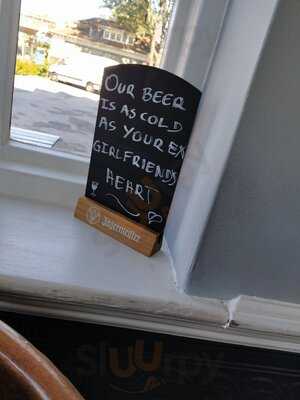 OUR BEER
IS AS COLD
AS YOUR EX
GIRLFRIENDS
HEART
Jägermeister
Sluurpy